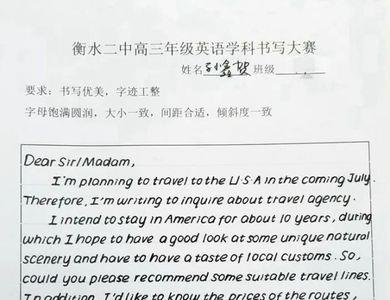 衡水二中高三年级英语学科书写大赛
姓名 班级
要求：书写优美，字迹工整
字母饱满圆润，大小一致，间距合适，倾斜度一致
Dear Sir/Madam,
I'm planning to travel to the U·S·A in the coming July.
Therefore, I'm writing to inquire about travel agency.
I intend to stay in America for about 10 years, during
which I hope to have a good look at some unique natural
scenery and have to have a taste of local customs. So,
could you please recommend some suitable travel lines.
In addition, I'd like to know the prices of the routes,